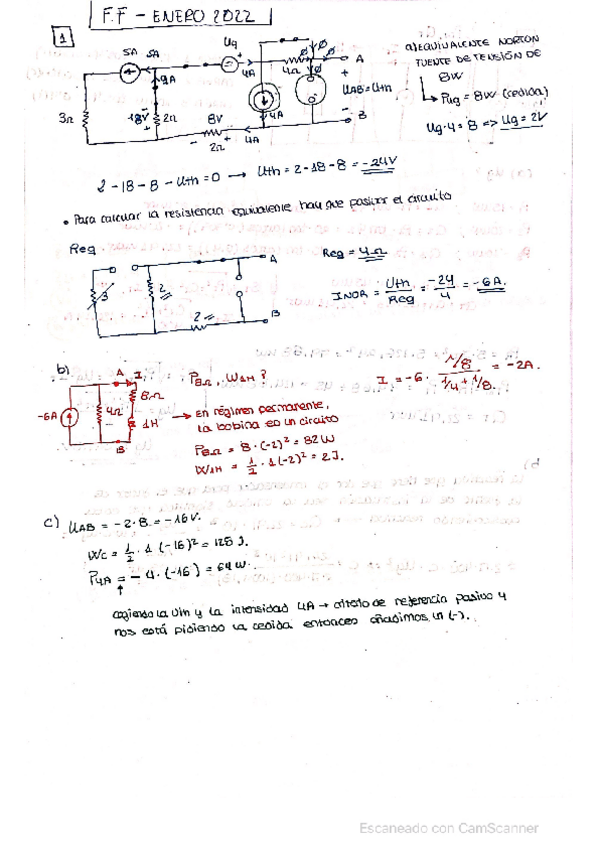 F.F - ENERO 2022
1
5A 5A Ug 4A 4Ω A
9A
3Ω 18V 2Ω 8V 4A UAB=Uth
2Ω 4A B
a) EQUIVALENTE NORTON
FUENTE DE TENSIÓN DE
8W
Pug = 8W (cedida)
Ug·4 = 8 => Ug = 2V
2 - 18 - 8 - Uth = 0 → Uth = 2 - 18 - 8 = -24V
• Para calcular la resistencia equivalente hay que pasivar el circuito
Req
A
3 2
2 B
Req = 4Ω
INOR = Uth/Req = -24/4 = -6A.
b)
A I
-6A 4Ω 8Ω
1H
B
P8Ω, W1H ?
→ en régimen permanente,
la bobina es un circuito
P8Ω = 8·(-2)² = 32W
W1H = 1/2 · 1(-2)² = 2J.
I = -6 · 1/8 / 1/4 + 1/8 = -2A.
c) UAB = -2·8 = -16V.
Wc = 1/2 · 1 (-16)² = 128 J.
P4A = -4·(-16) = 64W.
cogiendo la Uth y la intensidad 4A → criterio de referencia pasivo y
nos está pidiendo la cedida entonces añadimos un (-).
Escaneado con CamScanner